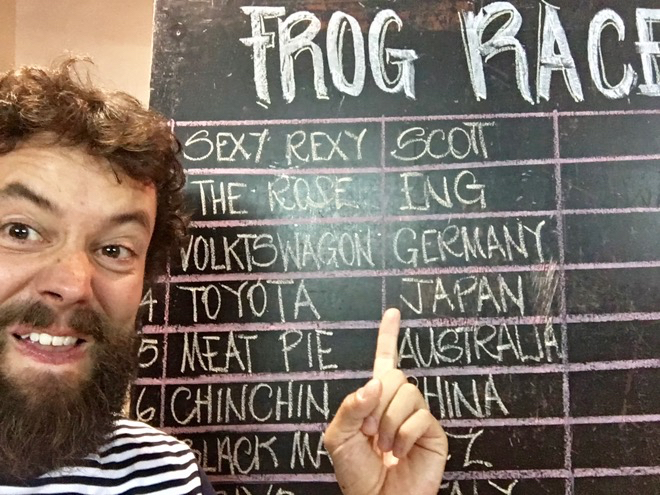 FROG RACE
SEXY REXY SCOTT
THE ROSE ENG
VOLKTSWAGON GERMANY
4 TOYOTA JAPAN
5 MEAT PIE AUSTRALIA
6 CHINCHIN CHINA
BLACK